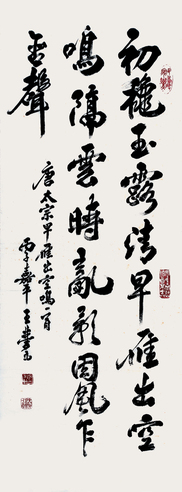 初穠玉露清早雁出空
鳴隔雲時亂影因風乍
含聲
唐太宗早雁出空鳴一首